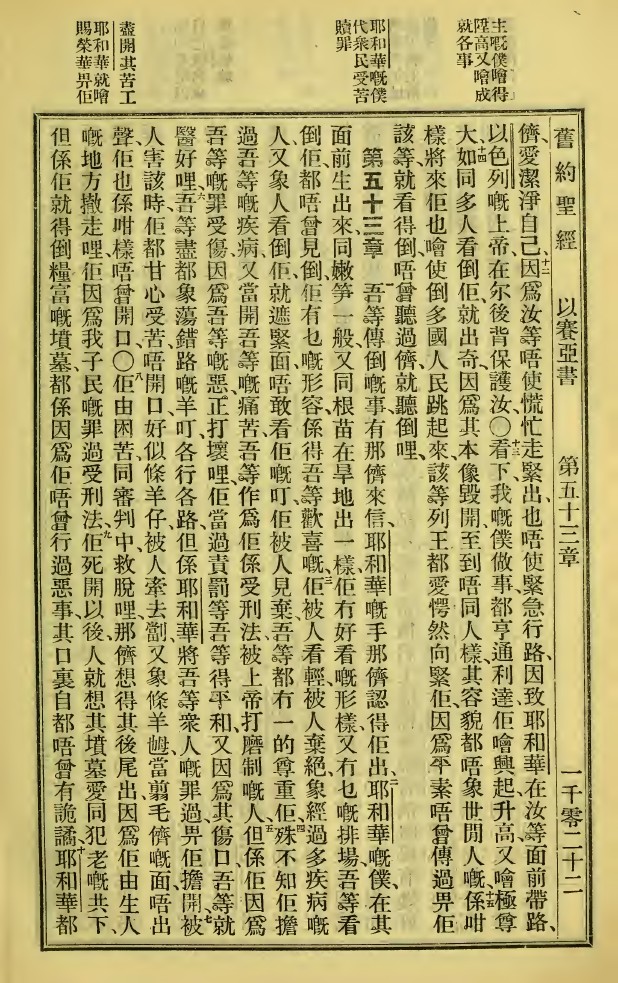 舊約聖經 以賽亞書 第五十三章 一千零二十二
主嘅僕噲得
陞高又噲成
就各事
耶和華嘅僕
代衆民受苦
贖罪
盡開其苦工
耶和華就噲
賜榮華畀佢
儕、愛潔淨自己、十二因爲汝等唔使慌忙走緊出、也唔使緊急行路、因致耶和華在汝等面前帶路、
以色列嘅上帝在尔後背保護汝〇十三看下、我嘅僕做事都亨通利達、佢噲興起升高、又噲極尊
大、十四如同多人看倒佢、就出奇、因爲其本像毀開、至到唔同人樣、其容貌都唔象世閒人嘅、十五係咁
樣將來佢也噲使倒多國人民跳起來、該等列王都愛愕然向緊佢、因爲平素唔曾傳過畀佢
該等就看得倒、唔曾聽過儕就聽倒哩、
第五十三章 一吾等傳倒嘅事、有那儕來信、耶和華嘅手、那儕認得佢出、二耶和華嘅僕、在其
面前生出來、同嫩笋一般、又同根苗在旱地出一樣、佢冇好看嘅形樣、又冇乜嘅排場、吾等看
倒佢、都唔曾見倒佢有乜嘅形容、係得吾等歡喜嘅、三佢被人看輕、被人棄絕、象經過多疾病嘅
人、又象人看倒佢就遮緊面、唔敢看佢嘅叮、佢被人見棄、吾等都冇一的尊重佢、四殊不知佢擔
過吾等嘅疾病、又當開吾等嘅痛苦、吾等作爲佢係受刑法、被上帝打磨制嘅人、五但係佢因爲
吾等嘅罪受傷、因爲吾等嘅惡正打壞哩、佢當過責罰、等吾等得平和、又因爲其傷口、吾等就
醫好哩、六吾等盡都象蕩錯路嘅羊叮、各行各路、但係耶和華將吾等衆人嘅罪過、畀佢擔開、七被
人害該時、佢都甘心受苦、唔開口、好似條羊仔、被人牽去劏、又象條羊𡜵當翦毛儕嘅面、唔出
聲、佢也係咁樣唔曾開口〇八佢由困苦同審判中救脫哩、那儕想得其後尾出、因爲佢由生人
嘅地方撤走哩、佢因爲我子民嘅罪過受刑法、九佢死開以後、人就想其墳墓愛同犯老嘅共下、
但係佢就得倒糧富嘅墳墓、都係因爲佢唔曾行過惡事、其口裏自都唔曾有詭譎、十耶和華都